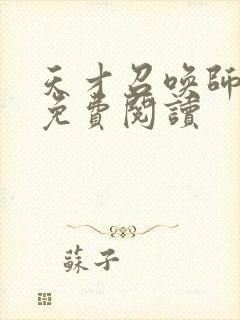 天才召喚師
免費閱讀
蘇子